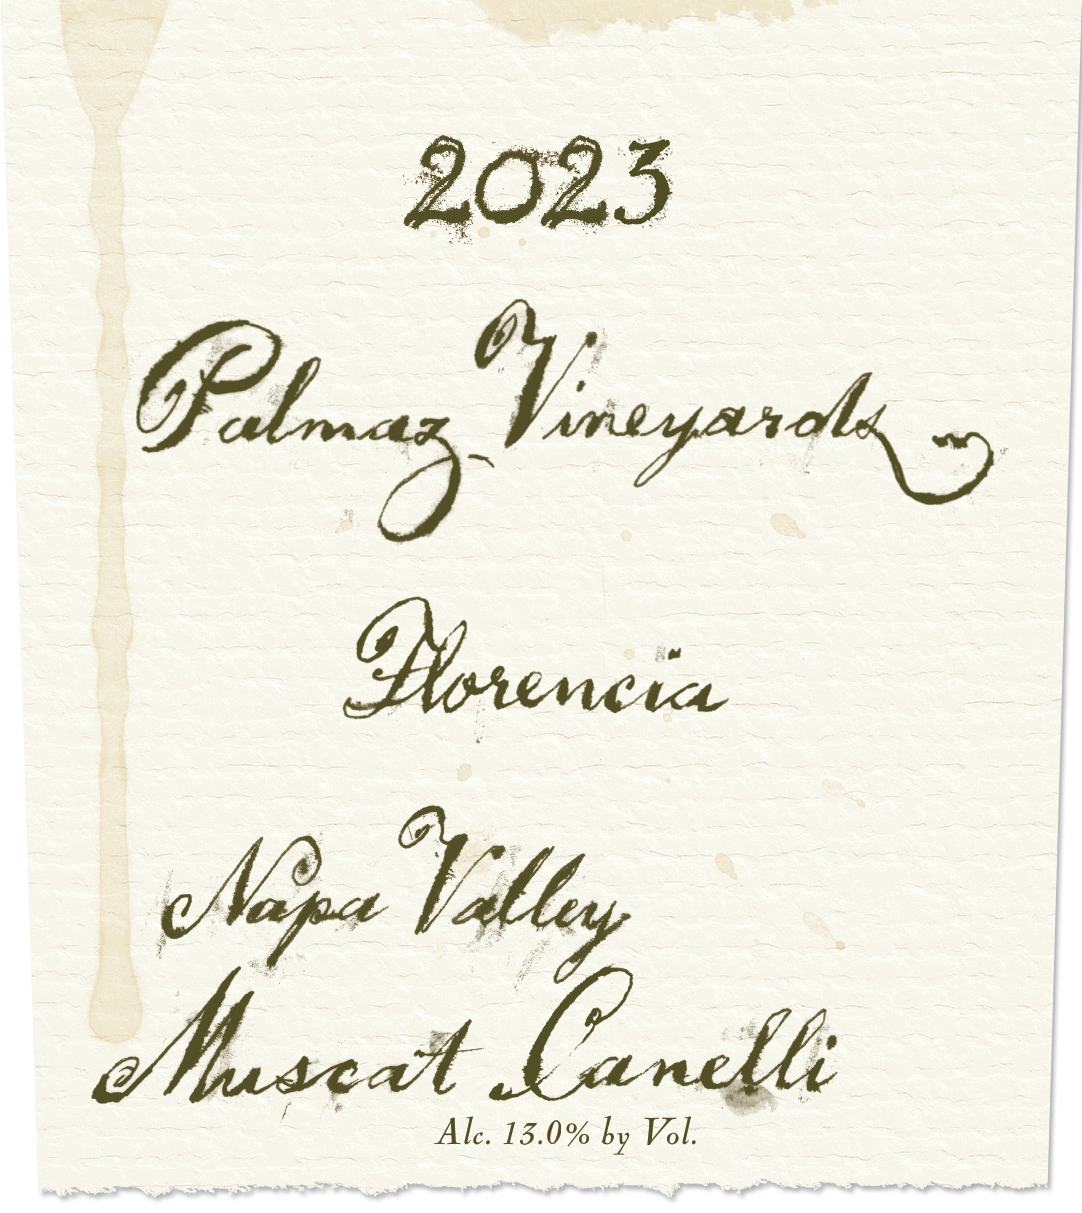 2023
Palmaz Vineyards
Florencia
Napa Valley
Muscat Canelli
Alc. 13.0% by Vol.